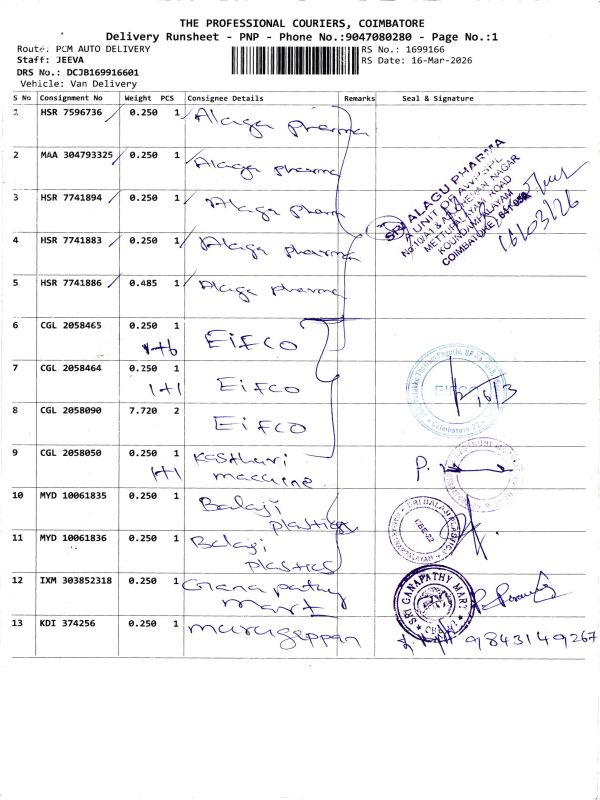 THE PROFESSIONAL COURIERS, COIMBATORE
Delivery Runsheet - PNP - Phone No.:9047080280 - Page No.:1
Route: PCM AUTO DELIVERY
RS No.: 1699166
Staff: JEEVA
RS Date: 16-Mar-2026
DRS No.: DCJB169916601
Vehicle: Van Delivery
S No Consignment No Weight PCS Consignee Details Remarks Seal & Signature
HSR 7596736 0.250 1 Alaga pharma
2 MAA 304793325 0.250 1 Alaga pharma
3 HSR 7741894 0.250 1 Alaga pharm
4 HSR 7741883 0.250 1 Alaga pharma
5 HSR 7741886 0.485 1 Alaga pharma
SRI ALAGU PHARMA
A UNIT OF
METTUPALAYAM ROAD
KOUNDAMPALAYAM
COIMBATORE
16/03/26
6 CGL 2058465 0.250 1 EIFCO
1+6
7 CGL 2058464 0.250 1 EIFCO
1+1
8 CGL 2058090 7.720 2 EIFCO
16/3
9 CGL 2058050 0.250 1 Kasthuri
1+1 machine
P.
10 MYD 10061835 0.250 1 Balaji
plastics
SRI BALAJI PLASTICS
CBE-22
11 MYD 10061836 0.250 1 Balaji
plastics
12 IXM 303852318 0.250 1 Gana pathy
mart
SRI GANAPATHY MART
13 KDI 374256 0.250 1 murugappan
9843149267